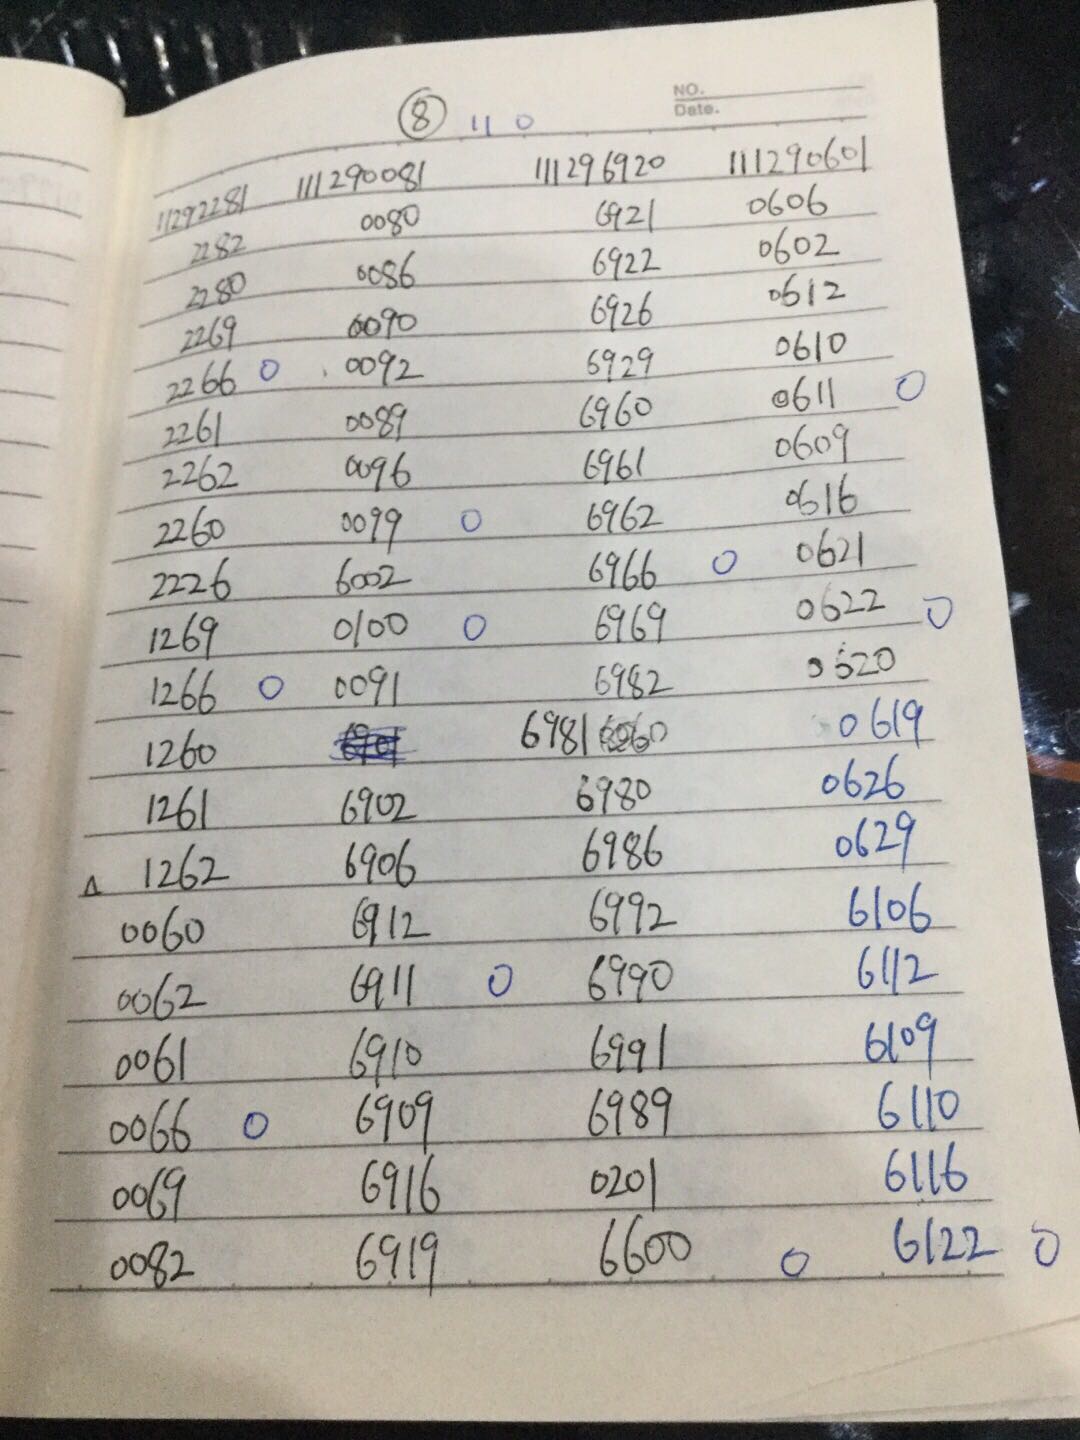 NO.
Date.
⑧ 11 0
11292281 111290081 111296920 111290601
2282 0080 6921 0606
2280 0086 6922 0602
2269 0090 6926 0612
2266 0 0092 6929 0610
2261 0089 6960 0611 0
2262 0096 6961 0609
2260 0099 0 6962 0616
2226 6002 6966 0 0621
1269 0100 0 6969 0622 0
1266 0 0091 6982 0620
1260 6981 0619
1261 6902 6980 0626
Δ 1262 6906 6986 0629
0060 6912 6992 6106
0062 6911 0 6990 6112
0061 6910 6991 6109
0066 0 6909 6989 6110
0069 6916 0201 6116
0082 6919 6600 0 6122 0